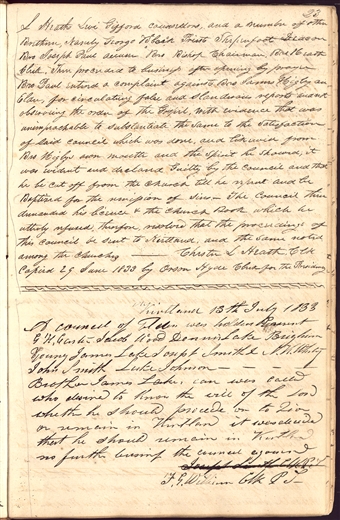 23
L Heath Levi Gifford councellors, and a number of other
Brethren, Namely George
Bro Joseph Paul accuser Bro Bishop Chairman Bro Heath
Clerk, Then proceeded to business after opening by prayer
Bro Paul enterd a complaint against Bro James Higby an
Elder, for circulating false and slanderous reports and not
observing the order of the Gospel, with evidence that was
unimpeachable to substantiate the same to the satisfaction
of said council which was done, and likewise from
Bro Higbys own mouth and the Spirit he showed, it
was evident and declared Guilty by the council and that
he be cut off from the church till he repent and be
Baptized for the remission of Sins— The Council then
demanded his license & the Church Book which he
utterly refused, therefore resolved that the proceedings of
this Council be sent to Kirtland, and the same noted
among the Churches ——— Chester L Heath Clk
Copied 29 June 1833 by Orson Hyde Clerk for the Presidency
Kirtland 13th July 1833
A council of Elders was holden Present
G H Carter Jacob Wood Dennis Lake Brigham
Young James Lake Joseph Smith & N. K. Whitney
John Smith Luke Johnson
Brother James Lake, can was called
who desired to know the will of the Lord
wheth he should procede on to Zion
or remain in Kirtland it was decided
that he should remain in Kirtland
no further business the council ajourned
F. G. William Clk P. T—